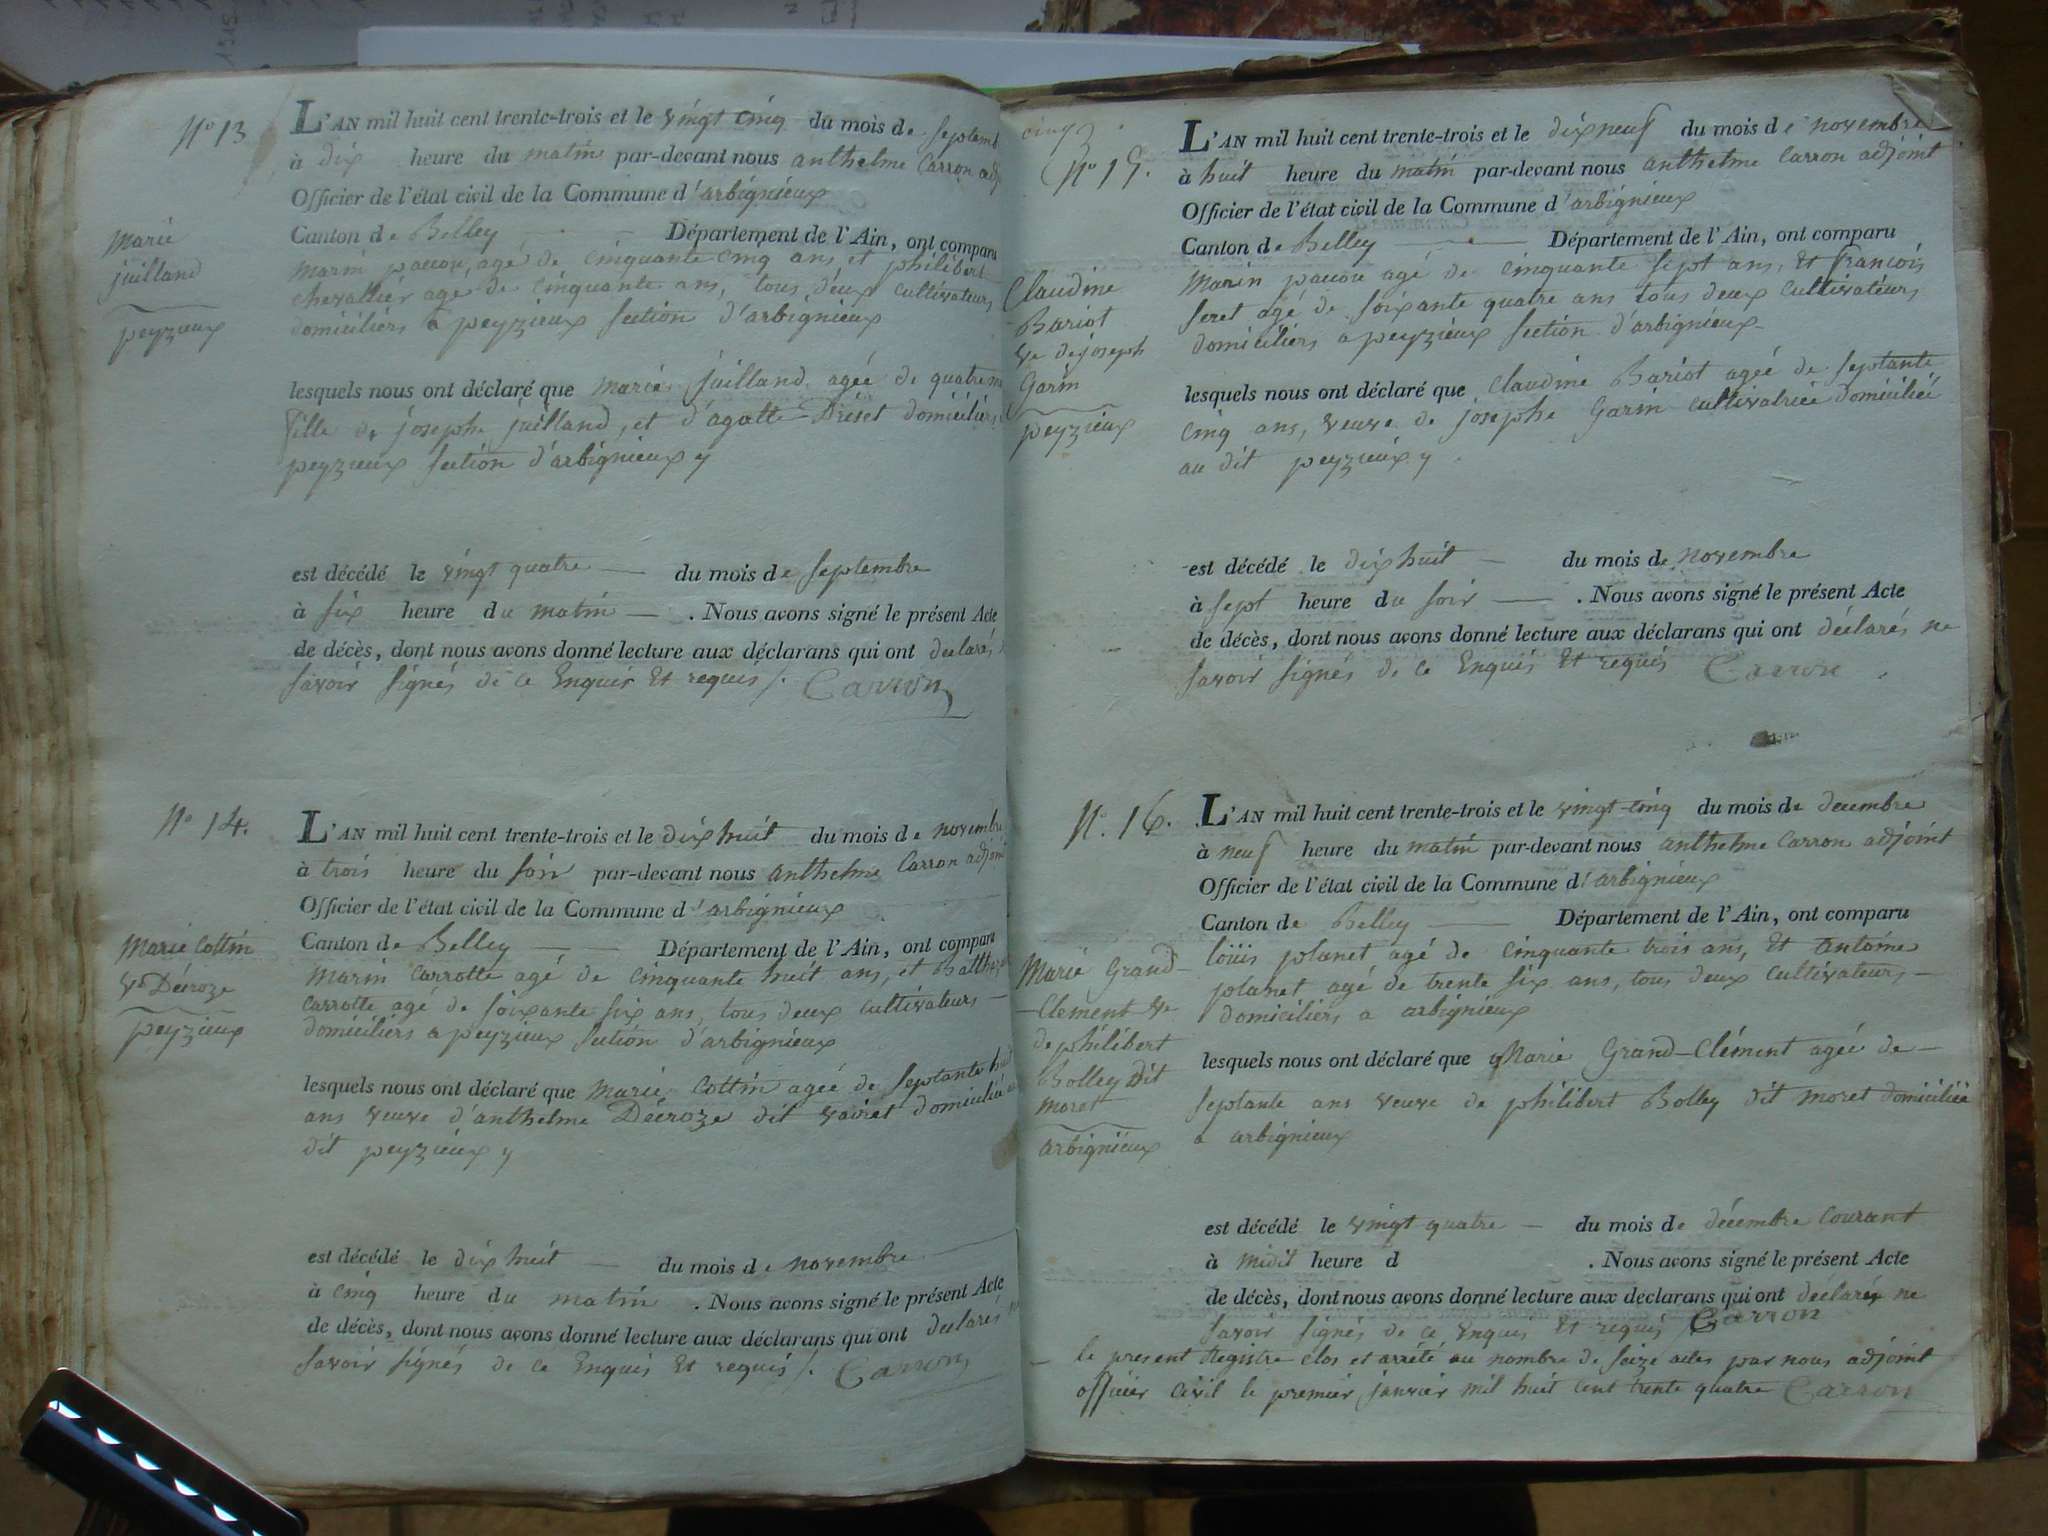 N° 13
L'AN mil huit cent trente-trois et le vingt cinq du mois de septemb
à dix heure du matin par-devant nous anthelme Carron adj
Officier de l'état civil de la Commune d'arbignieux
Canton de Belley Département de l'Ain, ont comparu
Marie
juilland
peyzieux
Marin pacou, agé de cinquante cinq ans, et philibert
chevallier agé de cinquante ans, tous deux cultivateurs,
domiciliers a peyzieux section d'arbignieux
lesquels nous ont déclaré que Marie juilland agée de quatre
fille de josephe juilland, et d'agatte domiciliers
peyzieux section d'arbignieux
est décédé le vingt quatre du mois de septembre
à six heure du matin . Nous avons signé le présent Acte
de décès, dont nous avons donné lecture aux déclarans qui ont déclarés
savoir signés de ce Enquis Et requis /. Carron
N° 14.
L'AN mil huit cent trente-trois et le dix huit du mois de novembre
à trois heure du soir par-devant nous anthelme Carron adjoint
Officier de l'état civil de la Commune d'arbignieux
Canton de Belley Département de l'Ain, ont comparu
Marie Cottin
ve Déroze
peyzieux
Marin Carrotte agé de cinquante huit ans, et
Carrotte agé de soixante six ans, tous deux cultivateurs
domiciliers a peyzieux section d'arbignieux
lesquels nous ont déclaré que Marie Cottin agée de septante huit
ans veuve d'anthelme Déroze dit domiciliée
dit peyzieux
est décédé le dix huit du mois de novembre
à cinq heure du matin . Nous avons signé le présent Acte
de décès, dont nous avons donné lecture aux déclarans qui ont declarés
savoir signés de ce Enquis Et requis /. Carron
cinq
N° 15.
L'AN mil huit cent trente-trois et le dix neuf du mois de novembre
à huit heure du matin par-devant nous anthelme Carron adjoint
Officier de l'état civil de la Commune d'arbignieux
Canton de Belley Département de l'Ain, ont comparu
Claudine
Bariot
ve de joseph
Garin
peyzieux
Marin pacou agé de cinquante sept ans, Et francois
seret agé de soixante quatre ans tous deux cultivateurs
domiciliers a peyzieux section d'arbignieux
lesquels nous ont déclaré que Claudine Bariot agée de septante
cinq ans, veuve de josephe Garin cultivatrice domiciliée
au dit peyzieux
est décédé le dix huit du mois de novembre
à sept heure du soir . Nous avons signé le présent Acte
de décès, dont nous avons donné lecture aux déclarans qui ont déclarés ne
savoir signés de ce Enquis Et requis Carron
N°. 16.
L'AN mil huit cent trente-trois et le vingt-cinq du mois de decembre
à neuf heure du matin par-devant nous anthelme Carron adjoint
Officier de l'état civil de la Commune d'arbignieux
Canton de Belley Département de l'Ain, ont comparu
Marie Grand-
-Clement ve
de philibert
Bolley dit
moret
arbignieux
loüis planet agé de cinquante trois ans, Et antoine
planet agé de trente six ans, tous deux cultivateurs
domiciliers a arbignieux
lesquels nous ont déclaré que Marie Grand-Clément agée de
septante ans veuve de philibert Bolley dit moret domiciliée
a arbignieux
est décédé le vingt quatre du mois de décembre courant
à midit heure d . Nous avons signé le présent Acte
de décès, dont nous avons donné lecture aux declarans qui ont déclarés ne
savoir signés de ce Enquis Et requis Carron
le present Registre clos et arrêté au nombre de seize actes par nous adjoint
officier civil le premier janvier mil huit cent trente quatre Carron